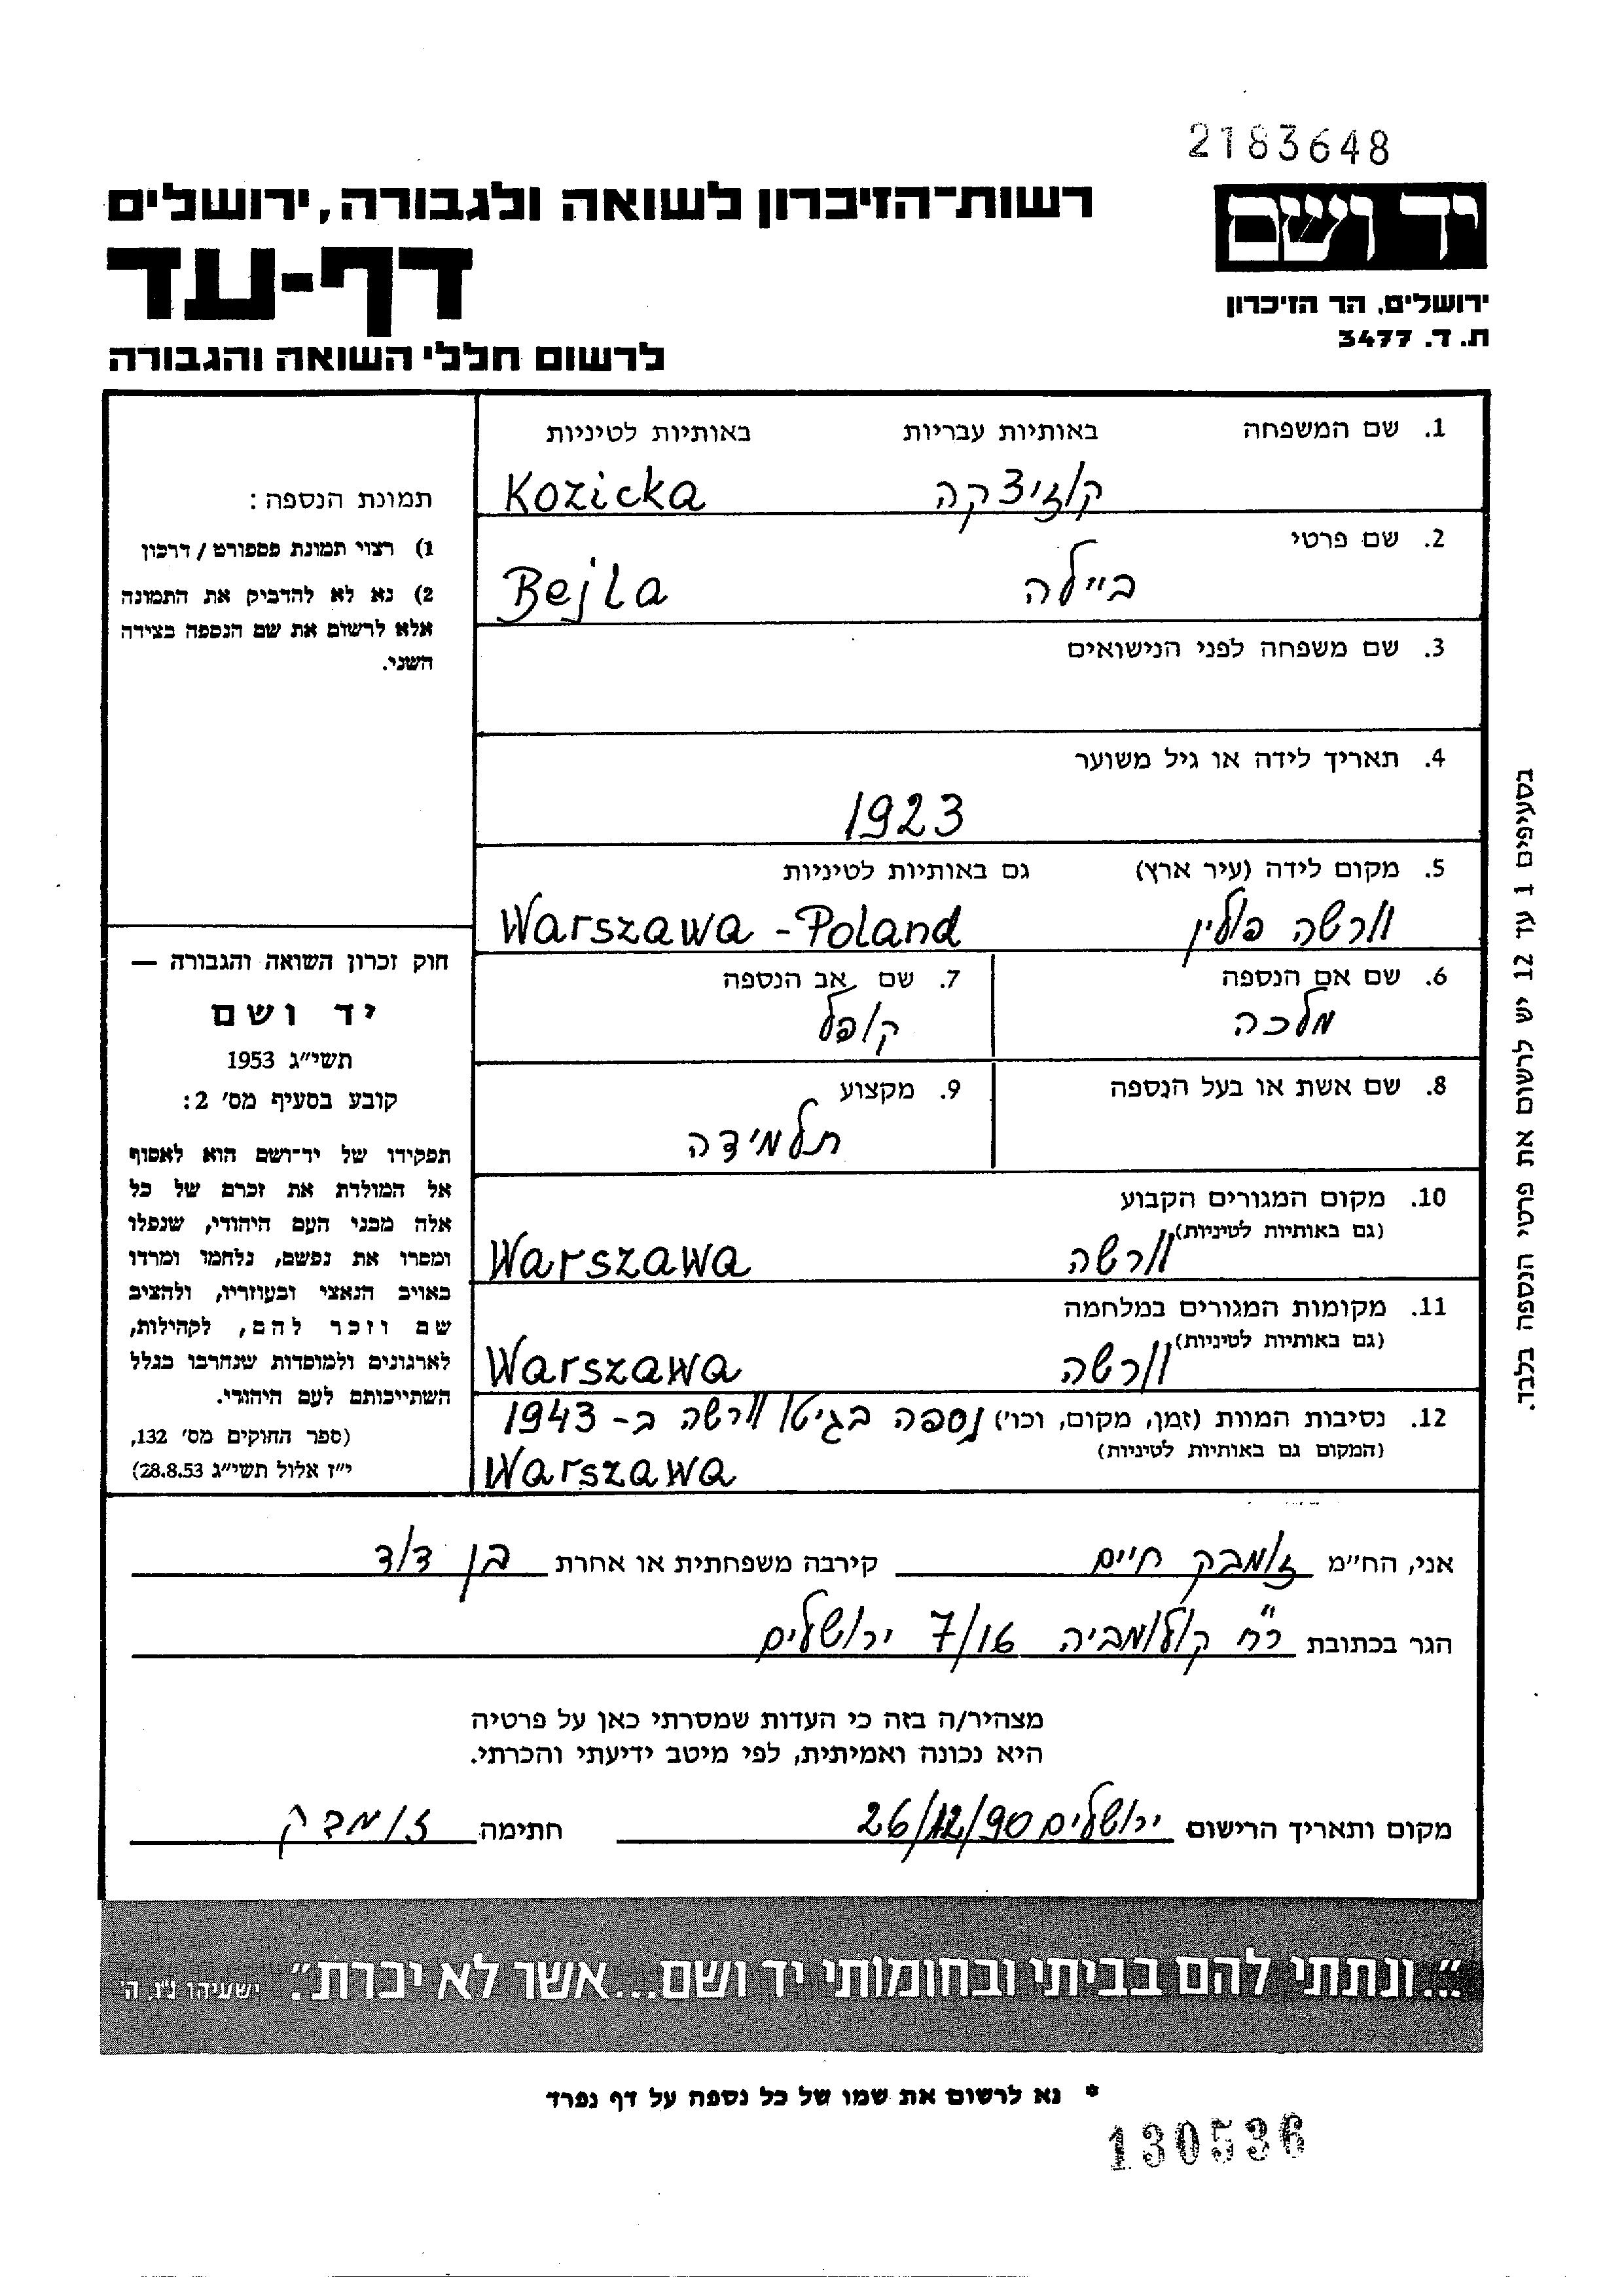 2183648
רשות־הזיכרון לשואה ולגבורה, ירושלים
יד ושם
דף-עד
ירושלים, הר הזיכרון
ת. ד. 3477
לרשום חללי השואה והגבורה
1. שם המשפחה באותיות עבריות באותיות לטיניות
קוזיצקה Kozicka
2. שם פרטי
ביילה Bejla
3. שם משפחה לפני הנישואים
4. תאריך לידה או גיל משוער
1923
5. מקום לידה (עיר ארץ) גם באותיות לטיניות
וורשה פולין Warszawa - Poland
6. שם אם הנספה 7. שם אב הנספה
מלכה קופל
8. שם אשת או בעל הנספה 9. מקצוע
תלמידה
10. מקום המגורים הקבוע
(גם באותיות לטיניות)
וורשה Warszawa
11. מקומות המגורים במלחמה
(גם באותיות לטיניות)
וורשה Warszawa
12. נסיבות המוות (זמן, מקום, וכו') נספה בגיטו וורשה ב- 1943
(המקום גם באותיות לטיניות)
Warszawa
תמונת הנספה:
1) רצוי תמונת פספורט / דרכון
2) נא לא להדביק את התמונה
אלא לרשום את שם הנספה בצידה
השני.
חוק זכרון השואה והגבורה —
יד ושם
תשי"ג 1953
קובע בסעיף מס' 2:
תפקידו של יד־ושם הוא לאסוף
אל המולדת את זכרם של כל
אלה מבני העם היהודי, שנפלו
ומסרו את נפשם, נלחמו ומרדו
באויב הנאצי ובעוזריו, ולהציב
שם וזכר להם, לקהילות,
לארגונים ולמוסדות שנחרבו בגלל
השתייכותם לעם היהודי.
(ספר החוקים מס' 132,
י"ז אלול תשי"ג 28.8.53)
בסעיפים 1 עד 12 יש לרשום את פרטי הנספה בלבד.
אני, הח"מ זומבק חיים קירבה משפחתית או אחרת בן דוד
הגר בכתובת רח' קולומביה 7/16 ירושלים
מצהיר/ה בזה כי העדות שמסרתי כאן על פרטיה
היא נכונה ואמיתית, לפי מיטב ידיעתי והכרתי.
מקום ותאריך הרישום ירושלים 26/12/90 חתימה זומבק
"...ונתתי להם בביתי ובחומותי יד ושם...אשר לא יכרת". ישעיהו נ"ו, ה'
* נא לרשום את שמו של כל נספה על דף נפרד
130536